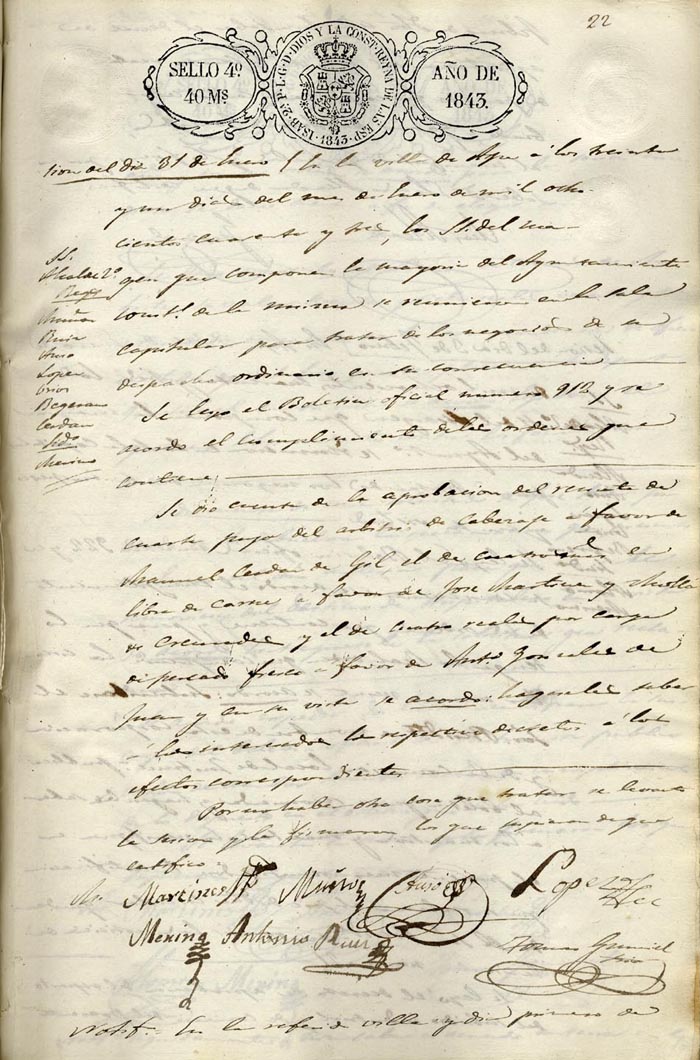 22
SELLO 4º
40 Ms
ISAB. 2ª P. L. G. D. DIOS Y LA CONST. REYNA DE LAS ESP.
1843
AÑO DE
1843.
sion del dia 31 de Enero En la villa de á los treinta
y un dias del mes de Enero de mil ocho
cientos cuarenta y tres, los SS. del
SS.
Alcalde 2º
Muñoz
Ruiz
Lopez
Cerdan
Merino
que componen la mayoria del Ayuntamiento
const.l de la misma se reunieron en la sala
capitular para tratar de los negocios de su
despacho ordinario en su consecuencia
Se leyo el Boletin oficial numero 912 y se
acordo el cumplimiento de las ordenes que
contiene
Se dio cuenta de la aprobacion del remate de
cuarta parte del arbitrio de cabezaje á favor de
Manuel Cerdan de Gil, el de cuatro mrs en
libra de carne á favor de Jose Martinez y
y el de cuatro reales por carga
de pescado fresco á favor de Antº Gonzalez de
Juan y en su vista se acordo: hagasele saber
á los interesados los respectivos decretos á los
efectos correspondientes
Por no haber otra cosa que tratar se levanto
la sesion y la firmaron los que supieron de que
certifico
Martinez Muñoz Lopez
Merino Antonio Ruiz
Srio
Notif. En la refda villa y dia primero de